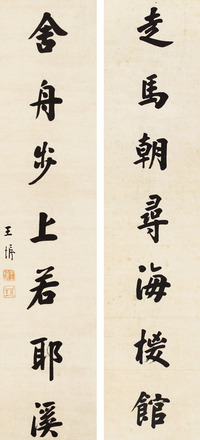 走馬朝尋海棧館
舍舟步上若耶溪
王𢍰